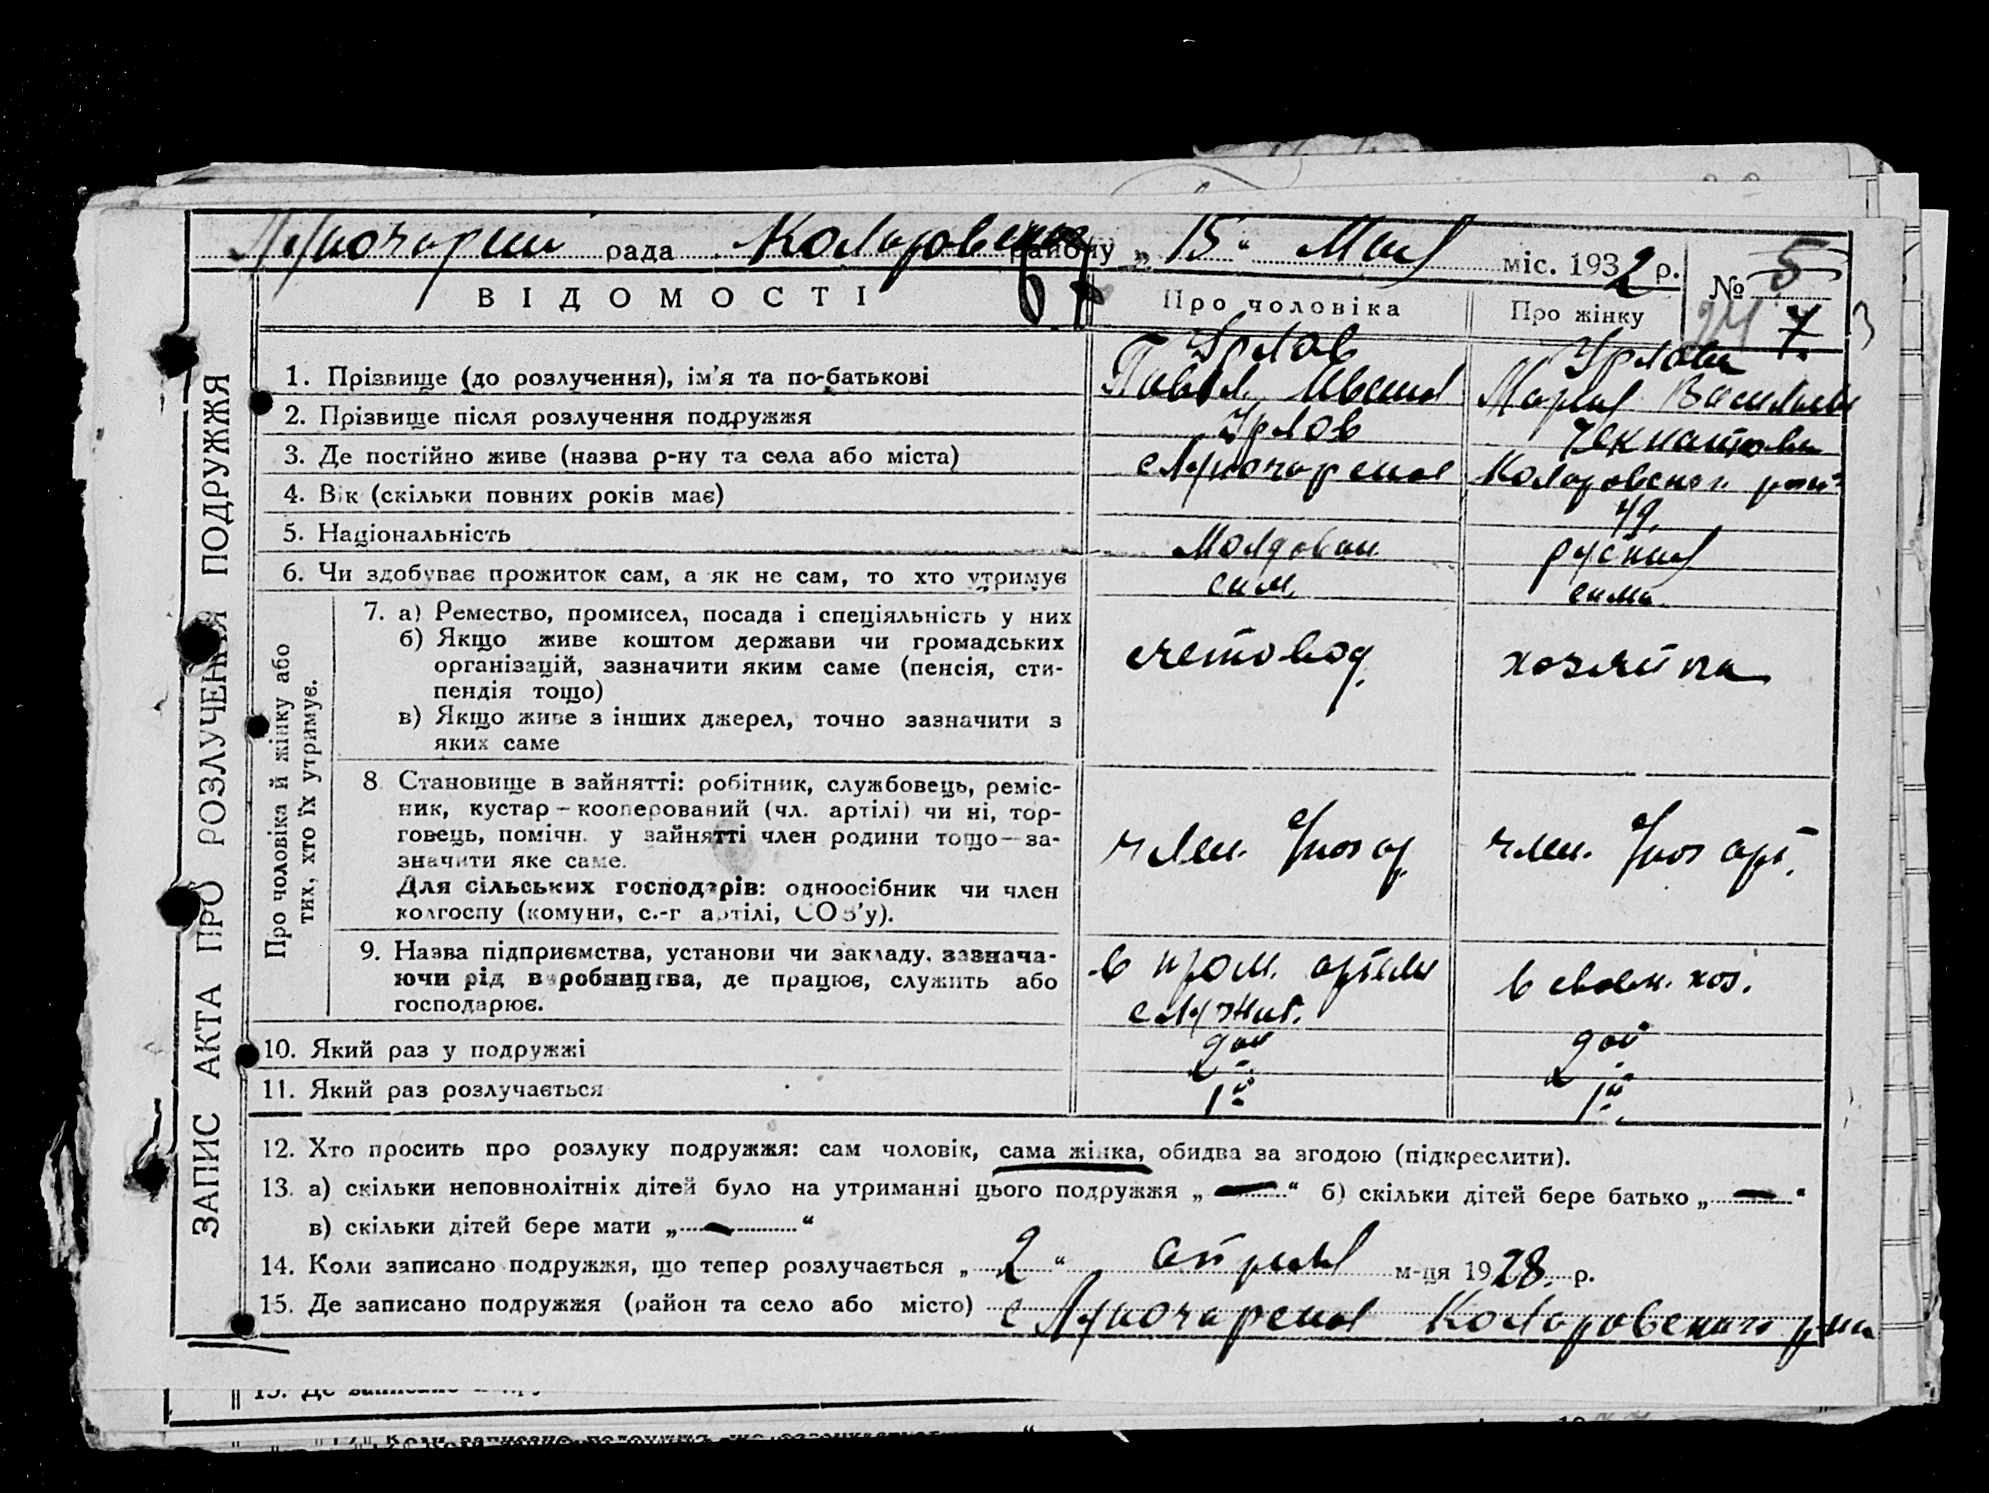 ЗАПИС АКТА ПРО РОЗЛУЧЕННЯ ПОДРУЖЖЯ
рада Коларовського району „15“ Мая міс. 1932 р.
№ 5
7
ВІДОМОСТІ Про чоловіка Про жінку
Урлов Урлова
1. Прізвище (до розлучення), ім’я та по-батькові Павел Мария
2. Прізвище після розлучення подружжя Урлов
3. Де постійно живе (назва р-ну та села або міста)
4. Вік (скільки повних років має)
5. Національність Молдован руская
6. Чи здобуває прожиток сам, а як не сам, то хто утримує сам. сама.
Про чоловіка й жінку або тих, хто їх утримує.
7. а) Ремество, промисел, посада і спеціяльність у них
б) Якщо живе коштом держави чи громадських
організацій, зазначити яким саме (пенсія, сти-
пендія тощо)
счетовод. хозяйка
в) Якщо живе з інших джерел, точно зазначити з
яких саме
8. Становище в зайнятті: робітник, службовець, реміс-
ник, кустар – кооперований (чл. артілі) чи ні, тор-
говець, помічн. у зайнятті член родини тощо — за-
значити яке саме.
член. член.
Для сільських господарів: одноосібник чи член
колгоспу (комуни, с.-г артілі, СОЗ’у).
9. Назва підприємства, установи чи закладу, зазнача-
ючи рід виробництва, де працює, служить або
господарює.
в пром. артели в своем. хоз.
служит.
10. Який раз у подружжі 2ой 2ой
11. Який раз розлучається 1й 1й
12. Хто просить про розлуку подружжя: сам чоловік, сама жінка, обидва за згодою (підкреслити).
13. а) скільки неповнолітніх дітей було на утриманні цього подружжя „ — “ б) скільки дітей бере батько „ — “
в) скільки дітей бере мати „ — “
14. Коли записано подружжя, що тепер розлучається „ 2 “ апреля м-ця 1928. р.
15. Де записано подружжя (район та село або місто) с Коларовского р-на